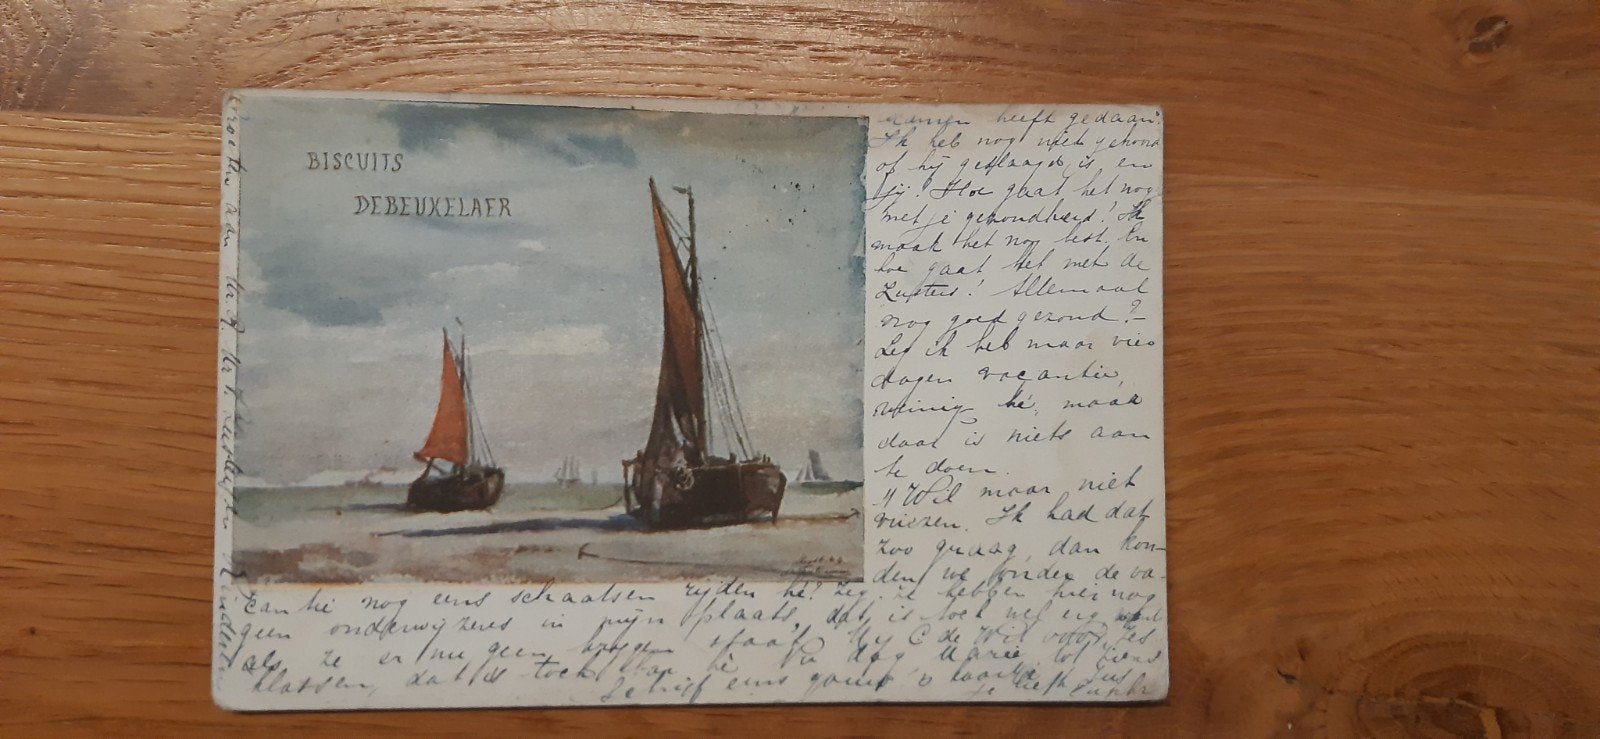 BISCUITS
DEBEUKELAER
examen heeft gedaan.
Ik heb nog niet gehoord
of hij geslaagd is, en
jij! Hoe gaat het nog
met je gezondheid! Ik
maak het nog best. En
hoe gaat het met de
Zusters! Allemaal
nog goed gezond?
Zeg ik heb maar vier
dagen vacantie,
weinig hè, maar
daar is niets aan
te doen.
't Wil maar niet
vriezen. Ik had dat
zoo graag, dan kon-
den we onder de va-
cantie nog eens schaatsen rijden hè? Zeg. Ze hebben hier nog
geen onderwijzeres in mijn plaats, dat is toch wel erg want
als ze er nu geen krijgen staat Mej C de Wit voor zes
klassen, dat is toch hè Nu dag Marie tot ziens
Schrijf eens gauw je
Groeten aan